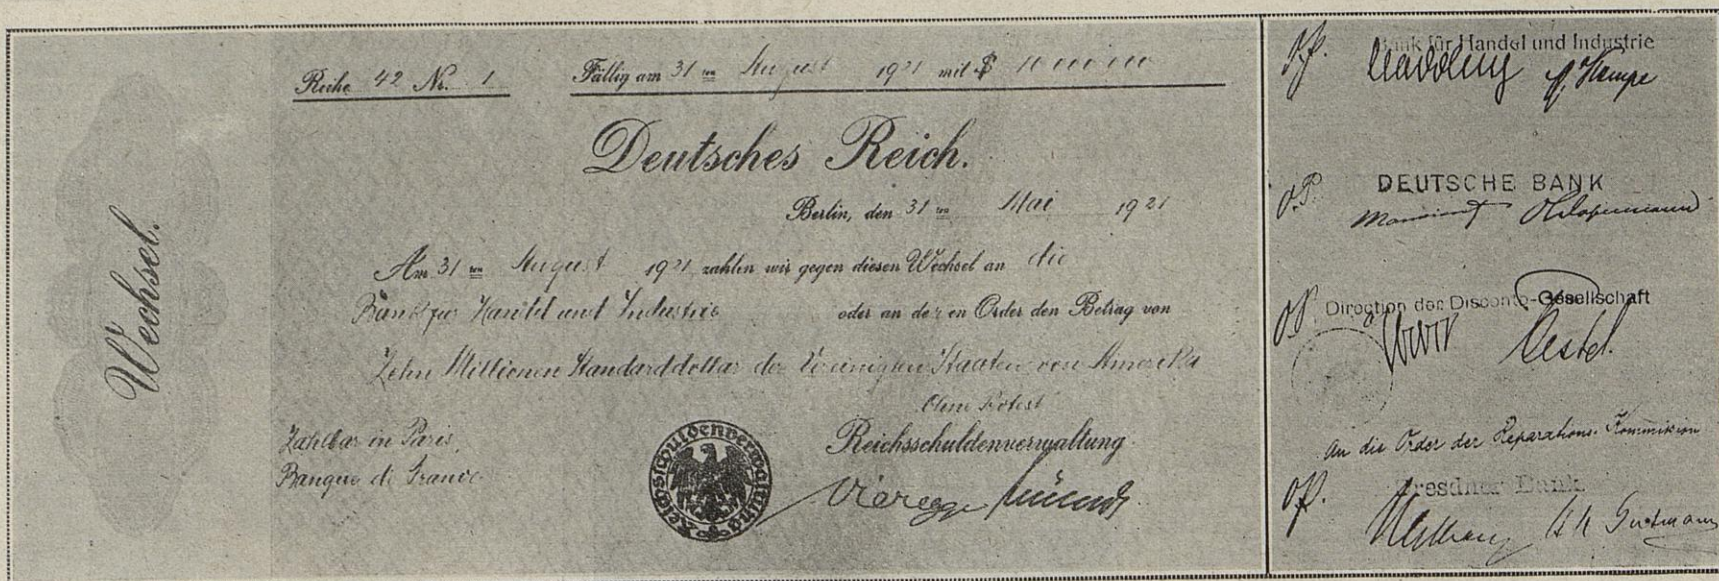 Wechsel.
Reihe 42 No. 1
Fällig am 31 ten August 1921 mit $ 10 000 000
Deutsches Reich.
Berlin, den 31 ten Mai 1921
Am 31 ten August 1921 zahlen wir gegen diesen Wechsel an die
Bank für Handel und Industrie oder an deren Order den Betrag von
Zehn Millionen Standarddollar der Vereinigten Staaten von Amerika
Ohne Protest
Zahlbar in Paris,
Banque de France
Reichsschuldenverwaltung
Reichsschuldenverwaltung
Vieregge
Bank für Handel und Industrie
DEUTSCHE BANK
Direction der Disconto-Gesellschaft
An die Order der Reparations-Kommission
Dresdner Bank
Gutmann